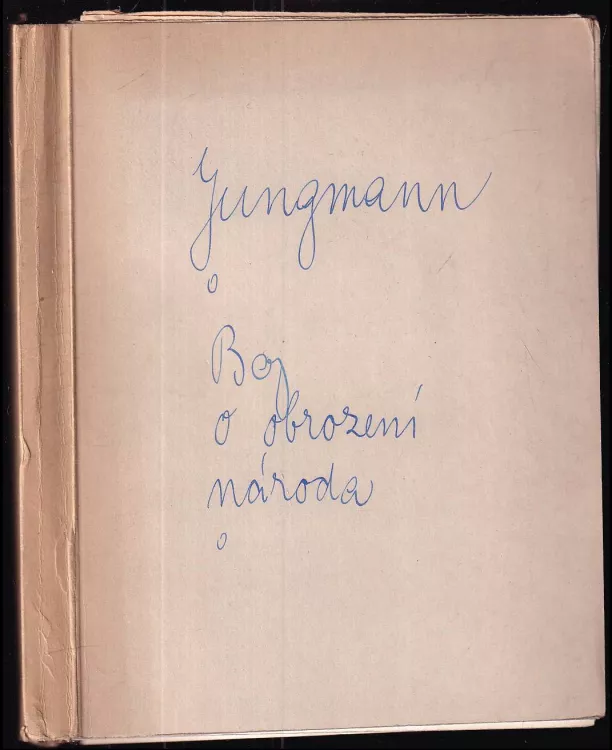 Jungmann
o
Boj
o obrození
národa
o